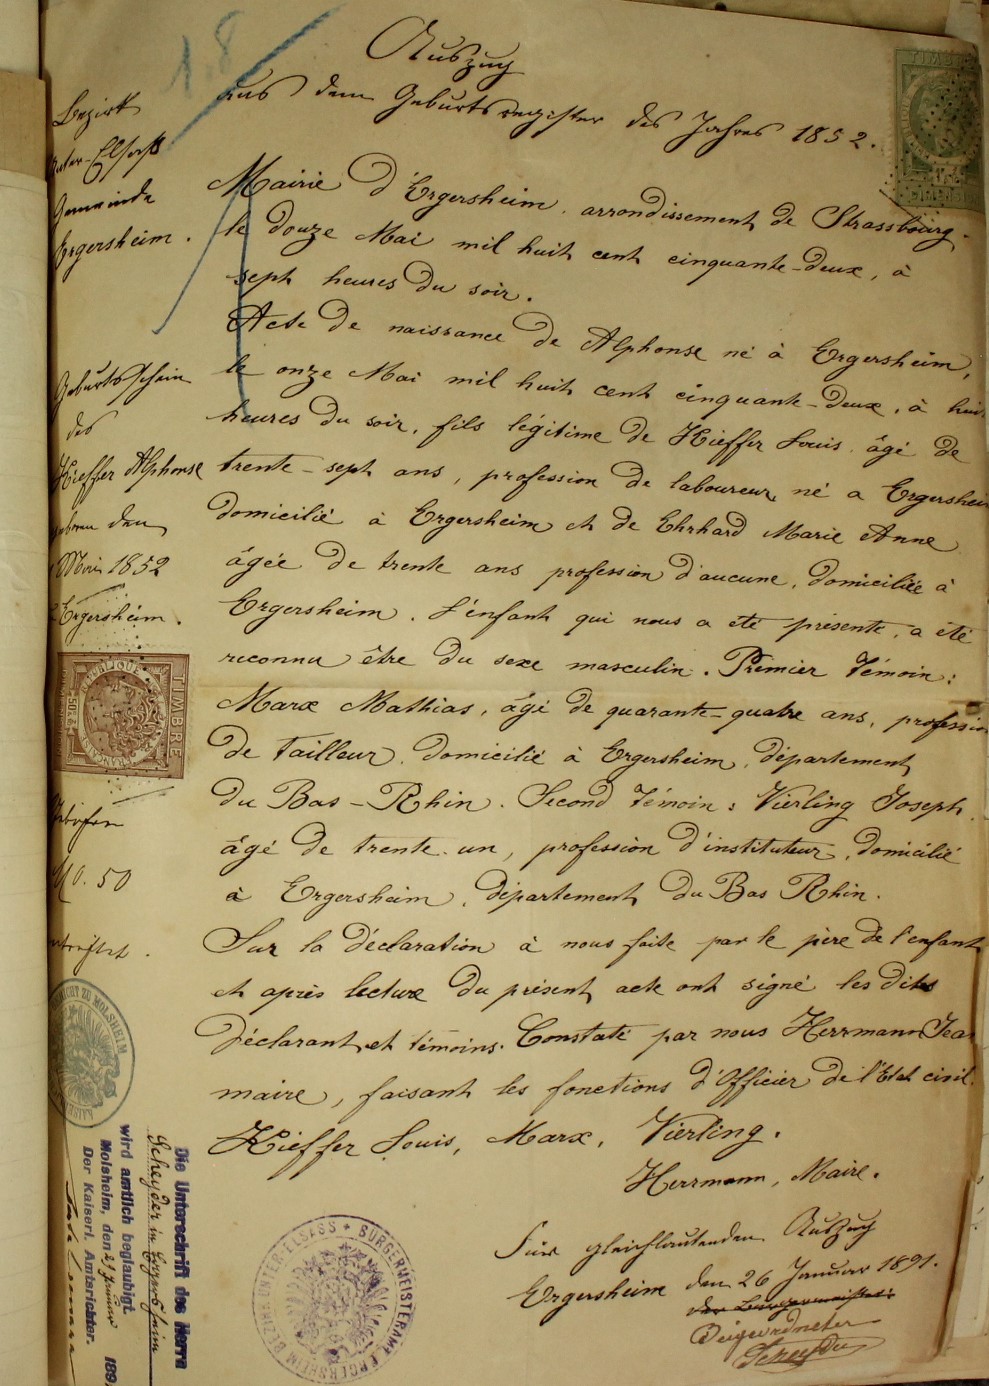 18
Auszug
aus dem Geburtsregister des Jahres 1852.
Bezirk
Unter-Elsaß
Gemeinde
Ergersheim.
Mairie d'Ergersheim, arrondissement de Strassbourg.
le douze Mai mil huit cent cinquante-deux, à
sept heures du soir.
Acte de naissance de Alphonse né à Ergersheim,
le onze Mai mil huit cent cinquante-deux, à huit
heures du soir, fils légitime de Kieffer Louis âgé de
trente-sept ans, profession de laboureur né a Ergersheim
domicilié à Ergersheim et de Ehrhard Marie Anne
âgée de trente ans profession d'aucune, domiciliée à
Ergersheim. L'enfant qui nous a été présenté, a été
reconnu être du sexe masculin. Premier témoin:
Marx Mathias, âgé de quarante-quatre ans, profession
de tailleur, domicilié à Ergersheim, département
du Bas-Rhin. Second témoin: Vierling Joseph
âgé de trente-un, profession d'instituteur, domicilié
à Ergersheim, département du Bas Rhin.
Sur la déclaration à nous faite par le père de l'enfant
et après lecture du présent acte ont signé les dits
déclarant et témoins. Constaté par nous Herrmann Jean
maire, faisant les fonctions d'Officier de l'État civil.
Kieffer Louis, Marx, Vierling.
Herrmann, Maire.
Für gleichlautenden Auszug
Ergersheim den 26 Januar 1891.
der Bürgermeister:
Beigeordneter
Scheyder
Geburtsschein
des
Kieffer Alphonse
geboren den
Mai 1852
Ergersheim.
TIMBRE
RÉPUBLIQUE FRANÇAISE
50c
No. 50
GERICHT ZU MOLSHEIM
Die Unterschrift des Herrn
Scheyder in Ergersheim
wird amtlich beglaubigt.
Molsheim, den 27 Januar 189
Der Kaiserl. Amtsrichter.
BEZIRK UNTER-ELSASS * BÜRGERMEISTERAMT ERGERSHEIM
TIMBRE